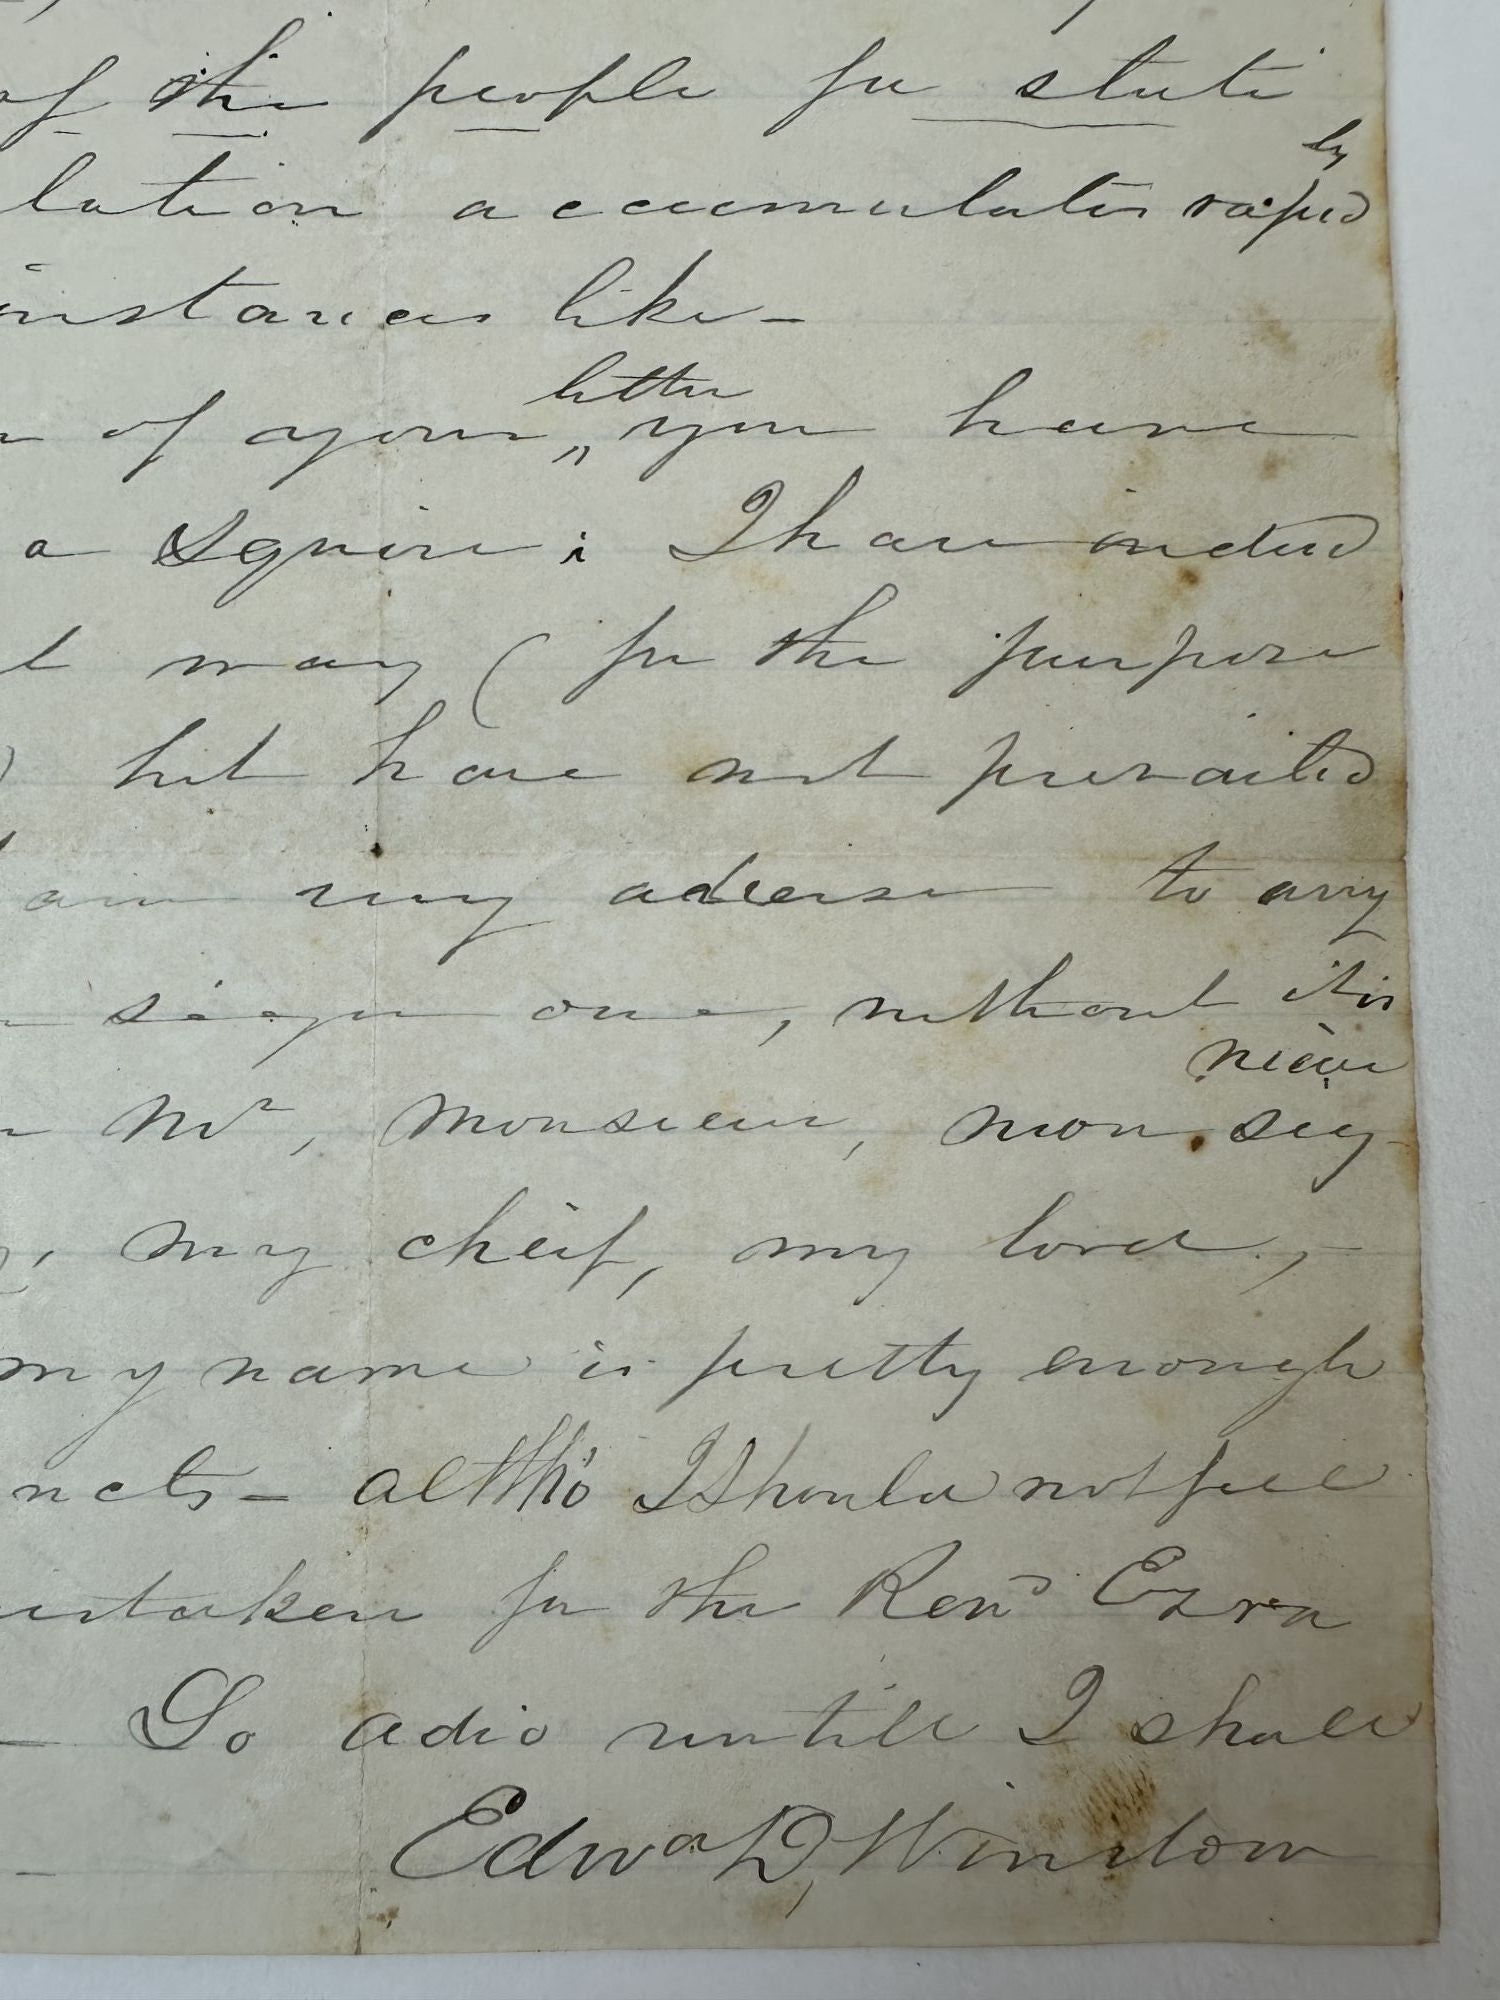 of the people for state
lation accumulates rapid
ly
instances like —
of your letter you have
a Squire; I have indeed
t way ( for the purpose
) but have not prevailed
am very adverse to any
single one, without it is
Mr, Monsieur, mon seig
nieur
, my cheif, my lord, –
my name is pretty enough
ncts – altho' I should not feel
istaken for the Revd Ezra
– So adio untill I shall
– Edward Winslow